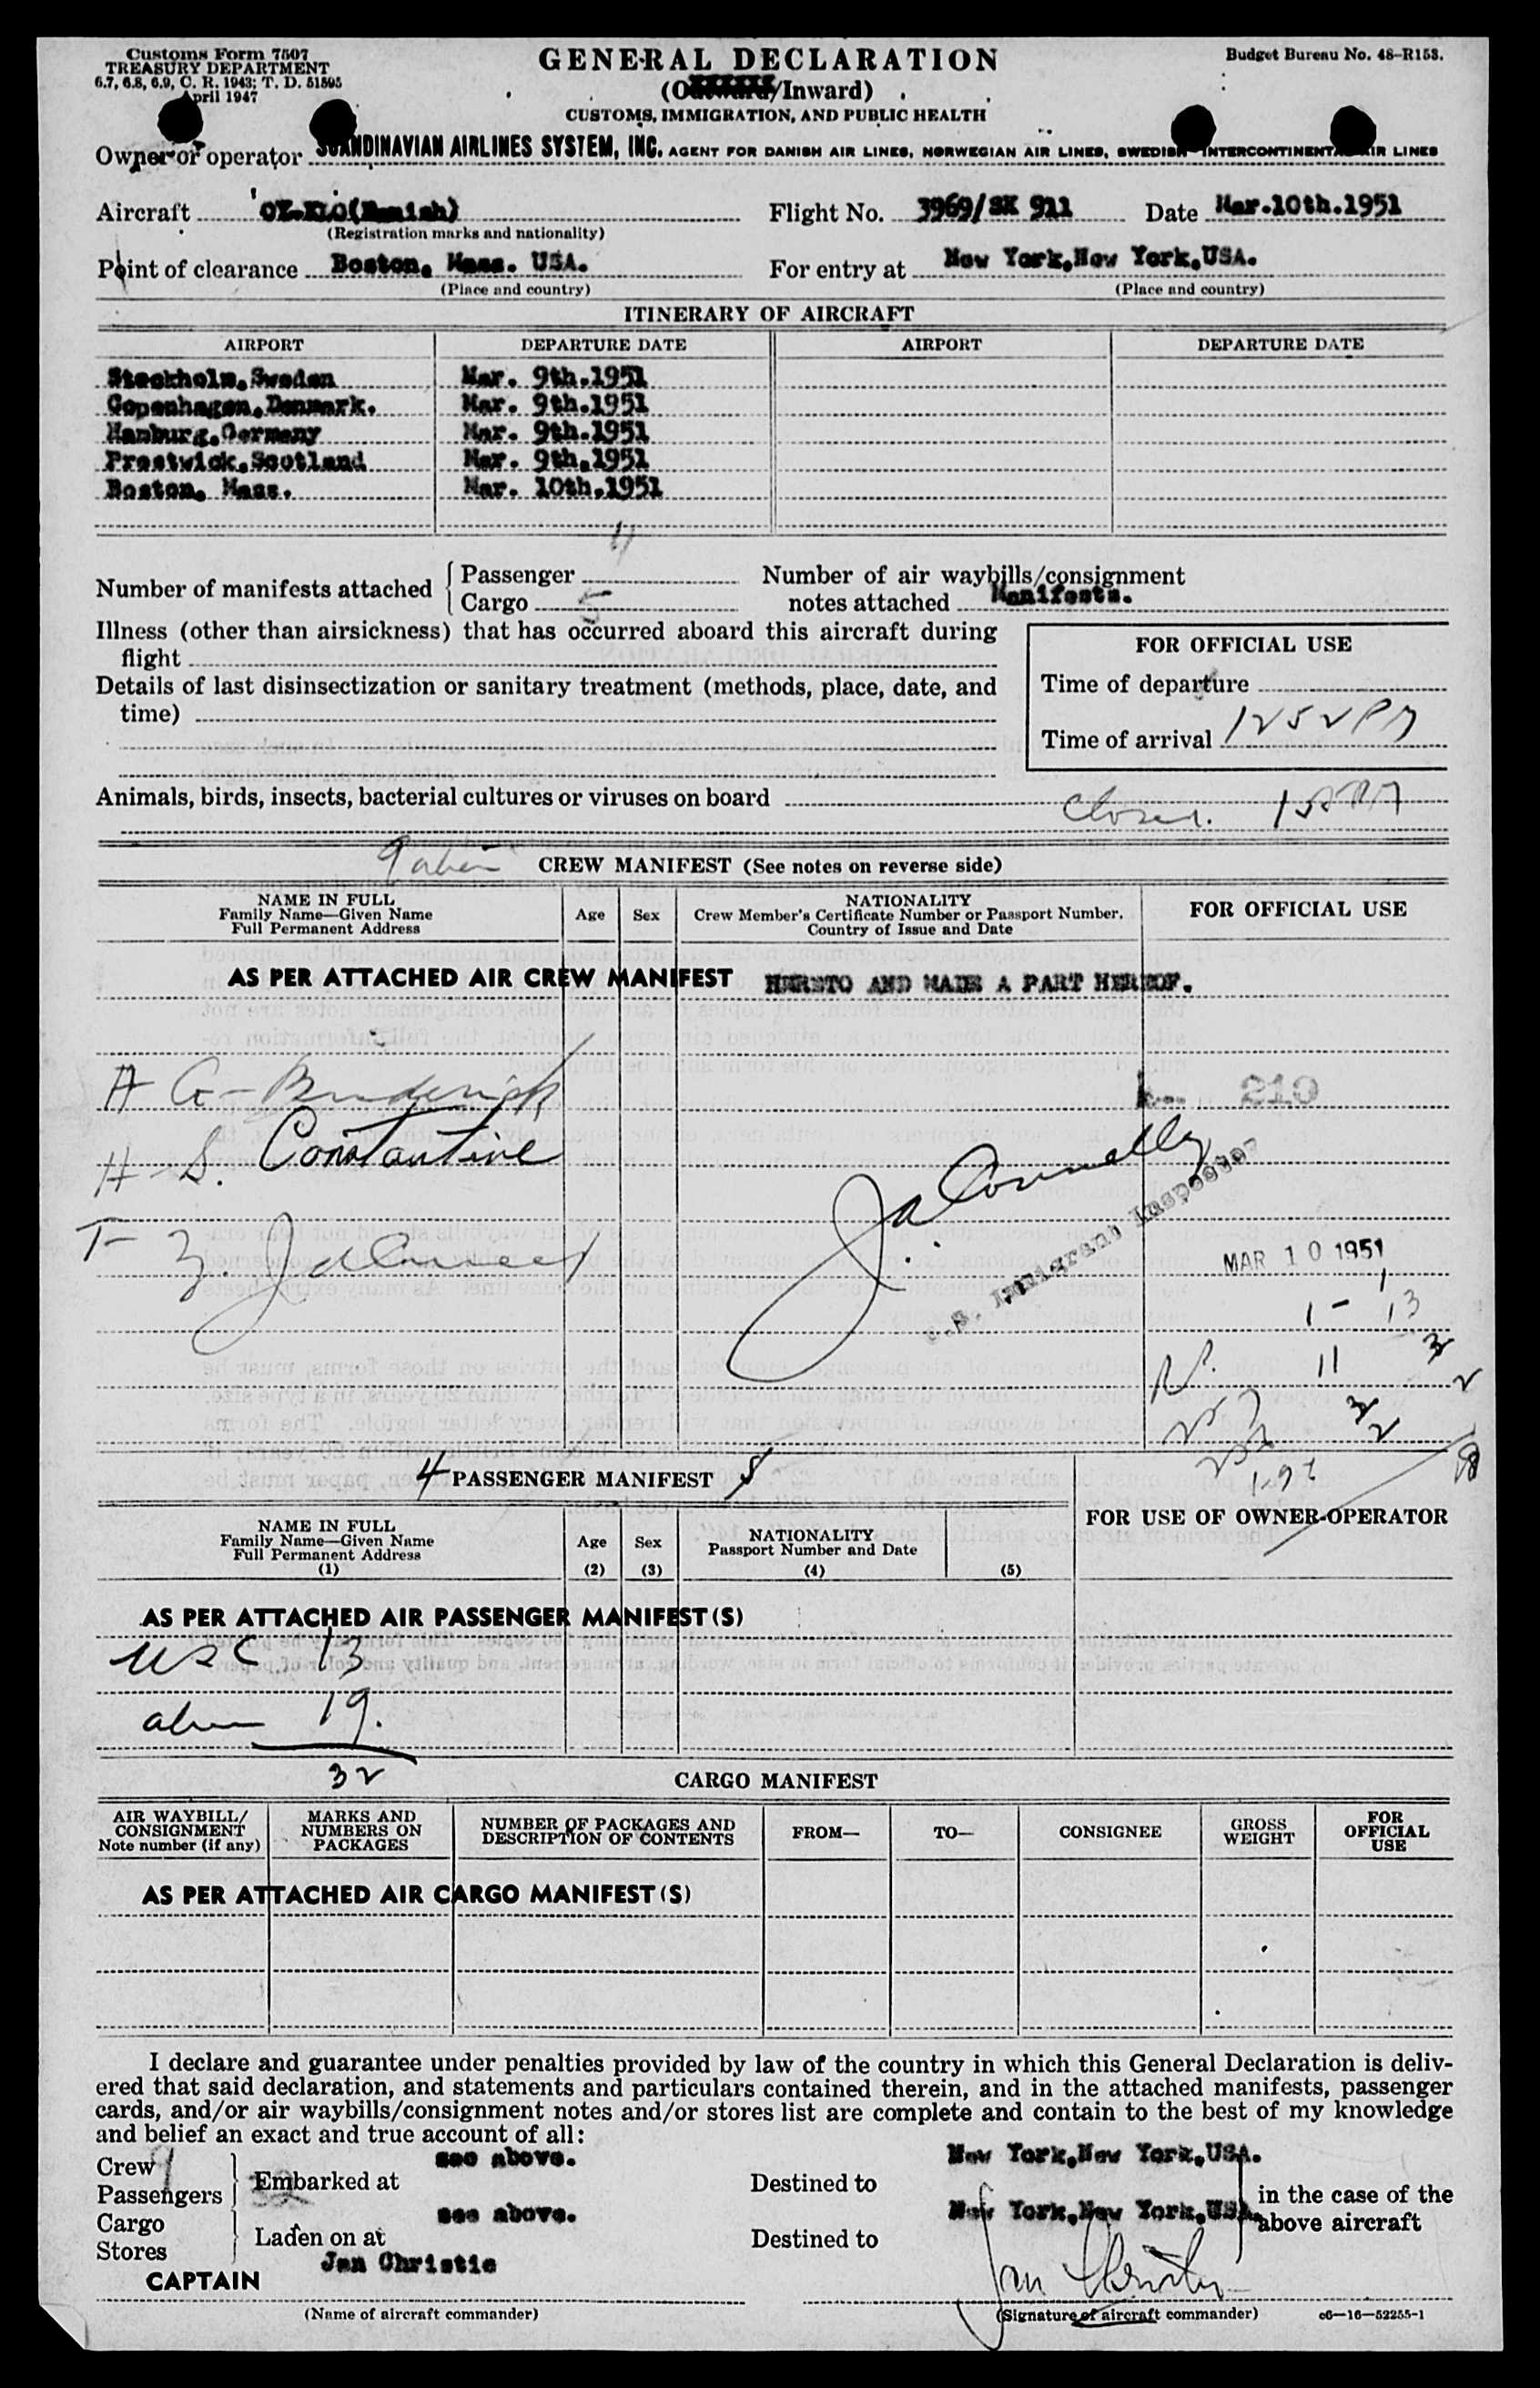 Customs Form 7507
TREASURY DEPARTMENT
6.7, 6.8, 6.9, C. R. 1943; T. D. 51595
April 1947
GENERAL DECLARATION
(Outward/Inward)
CUSTOMS, IMMIGRATION, AND PUBLIC HEALTH
Budget Bureau No. 48-R153.
Owner or operator SCANDINAVIAN AIRLINES SYSTEM, INC. AGENT FOR DANISH AIR LINES, NORWEGIAN AIR LINES, SWEDISH INTERCONTINENTAL AIR LINES
Aircraft OY-KLO(Danish) Flight No. 3969/SK 911 Date Mar.10th.1951
(Registration marks and nationality)
Point of clearance Boston, Mass. USA. For entry at New York,New York,USA.
(Place and country) (Place and country)
ITINERARY OF AIRCRAFT
AIRPORT DEPARTURE DATE AIRPORT DEPARTURE DATE
Stockholm,Sweden Mar. 9th.1951
Copenhagen,Denmark. Mar. 9th.1951
Hamburg,Germany Mar. 9th.1951
Prestwick,Scotland Mar. 9th.1951
Boston, Mass. Mar. 10th.1951
4
Number of manifests attached Passenger Number of air waybills/consignment
Cargo 5 notes attached Manifests.
Illness (other than airsickness) that has occurred aboard this aircraft during
flight
FOR OFFICIAL USE
Details of last disinsectization or sanitary treatment (methods, place, date, and
time)
Time of departure
Time of arrival 1252 PM
Animals, birds, insects, bacterial cultures or viruses on board
Closed.
9 alien CREW MANIFEST (See notes on reverse side)
NAME IN FULL
Family Name—Given Name
Full Permanent Address
Age Sex
NATIONALITY
Crew Member's Certificate Number or Passport Number,
Country of Issue and Date
FOR OFFICIAL USE
AS PER ATTACHED AIR CREW MANIFEST HERETO AND MADE A PART HEREOF.
A G- Broderick
210
H- S. Constantine
J a Connelly
U.S. Immigrant Inspector
MAR 10 1951
1 - 13
11
4 PASSENGER MANIFEST
NAME IN FULL
Family Name—Given Name
Full Permanent Address
(1)
Age
(2)
Sex
(3)
NATIONALITY
Passport Number and Date
(4) (5)
FOR USE OF OWNER-OPERATOR
AS PER ATTACHED AIR PASSENGER MANIFEST(S)
USC 13
alien 19.
32
CARGO MANIFEST
AIR WAYBILL/
CONSIGNMENT
Note number (if any)
MARKS AND
NUMBERS ON
PACKAGES
NUMBER OF PACKAGES AND
DESCRIPTION OF CONTENTS
FROM— TO— CONSIGNEE
GROSS
WEIGHT
FOR
OFFICIAL
USE
AS PER ATTACHED AIR CARGO MANIFEST(S)
I declare and guarantee under penalties provided by law of the country in which this General Declaration is deliv-
ered that said declaration, and statements and particulars contained therein, and in the attached manifests, passenger
cards, and/or air waybills/consignment notes and/or stores list are complete and contain to the best of my knowledge
and belief an exact and true account of all:
Crew 9
Passengers 32 Embarked at see above. Destined to New York,New York,USA.
in the case of the
above aircraft
Cargo
Stores Laden on at see above. Destined to New York,New York,USA.
CAPTAIN Jan Christie Jan Christie
(Name of aircraft commander) (Signature of aircraft commander) c6—16—52255-1